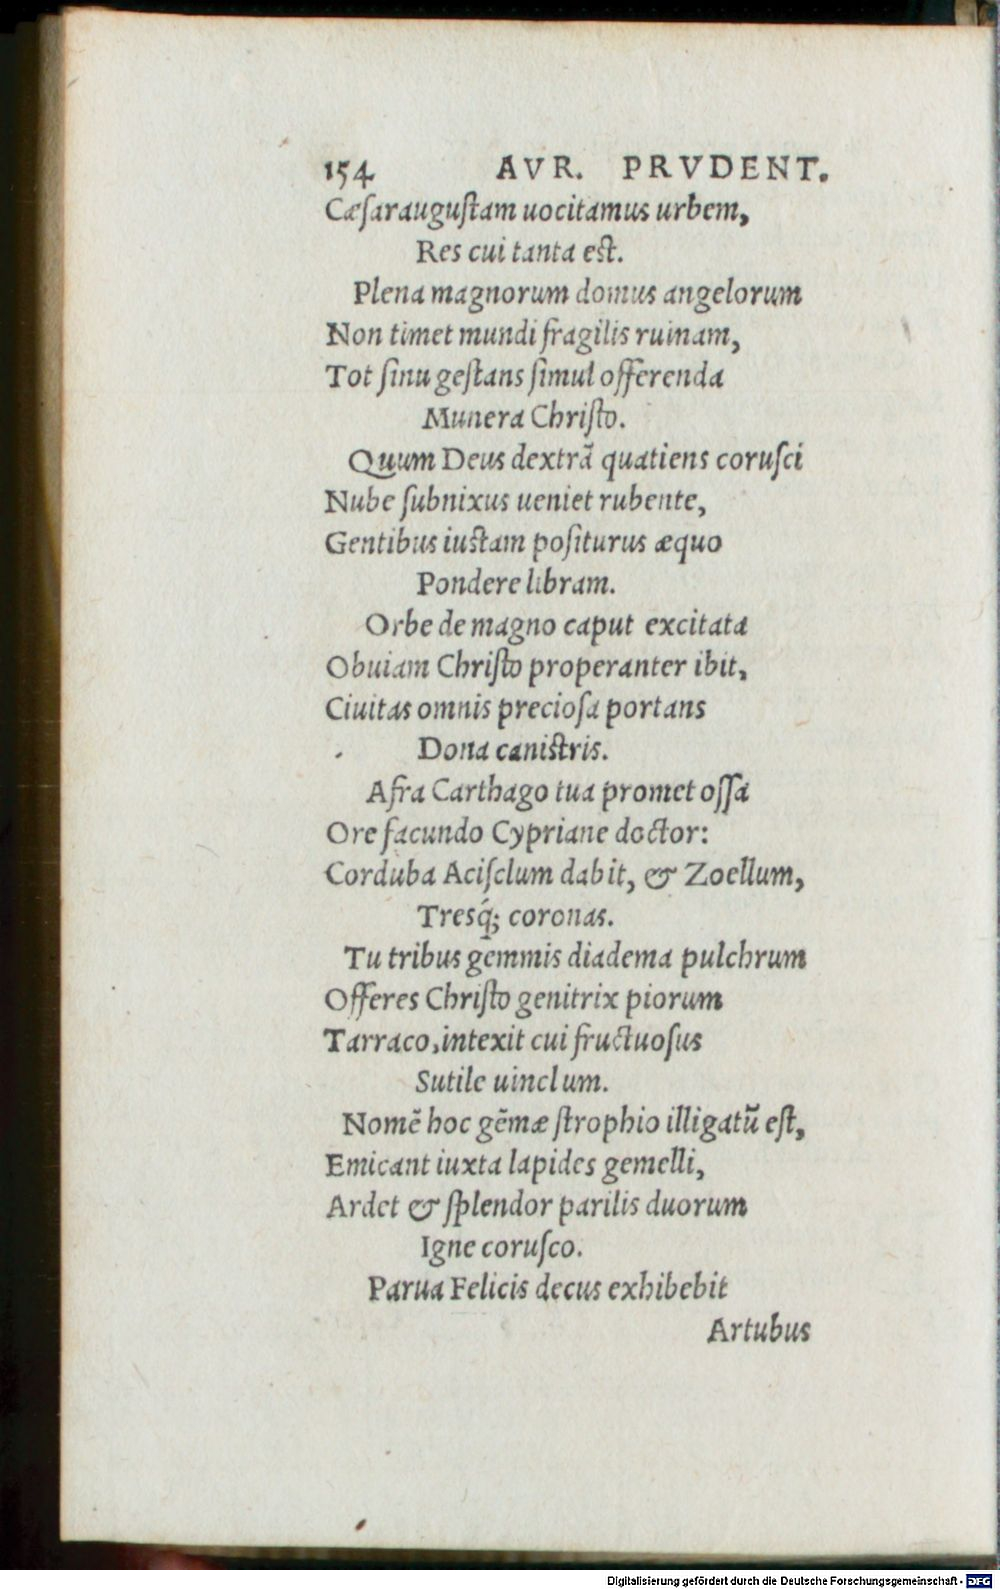 154 AVR. PRVDENT.
Cæſarauguſtam uocitamus urbem,
Res cui tanta eſt.
Plena magnorum domus angelorum
Non timet mundi fragilis ruinam,
Tot ſinu geſtans ſimul offerenda
Munera Chriſto.
Quum Deus dextrā quatiens coruſci
Nube ſubnixus ueniet rubente,
Gentibus iuſtam poſiturus æquo
Pondere libram.
Orbe de magno caput excitata
Obuiam Chriſto properanter ibit,
Ciuitas omnis precioſa portans
Dona caniſtris.
Afra Carthago tua promet oſſa
Ore facundo Cypriane doctor:
Corduba Aciſclum dabit, & Zoellum,
Tresq́; coronas.
Tu tribus gemmis diadema pulchrum
Offeres Chriſto genitrix piorum
Tarraco, intexit cui fructuoſus
Sutile uinclum.
Nomē hoc gēmæ ſtrophio illigatū eſt,
Emicant iuxta lapides gemelli,
Ardet & ſplendor parilis duorum
Igne coruſco.
Parua Felicis decus exhibebit
Artubus
Digitalisierung gefördert durch die Deutsche Forschungsgemeinschaft - DFG